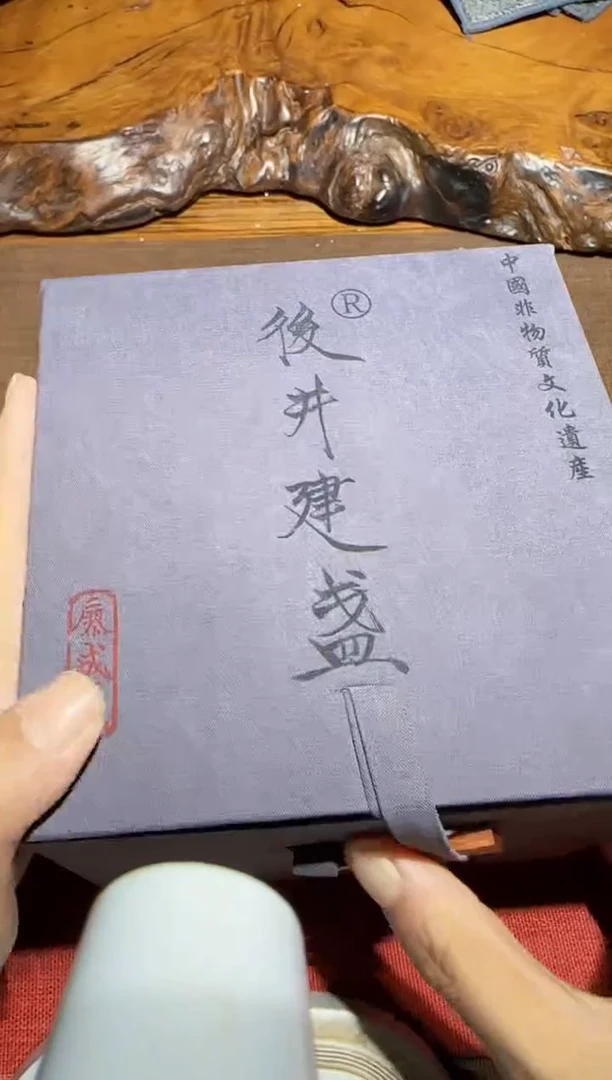 中國非物質文化遺產
後井建盞®
廖成